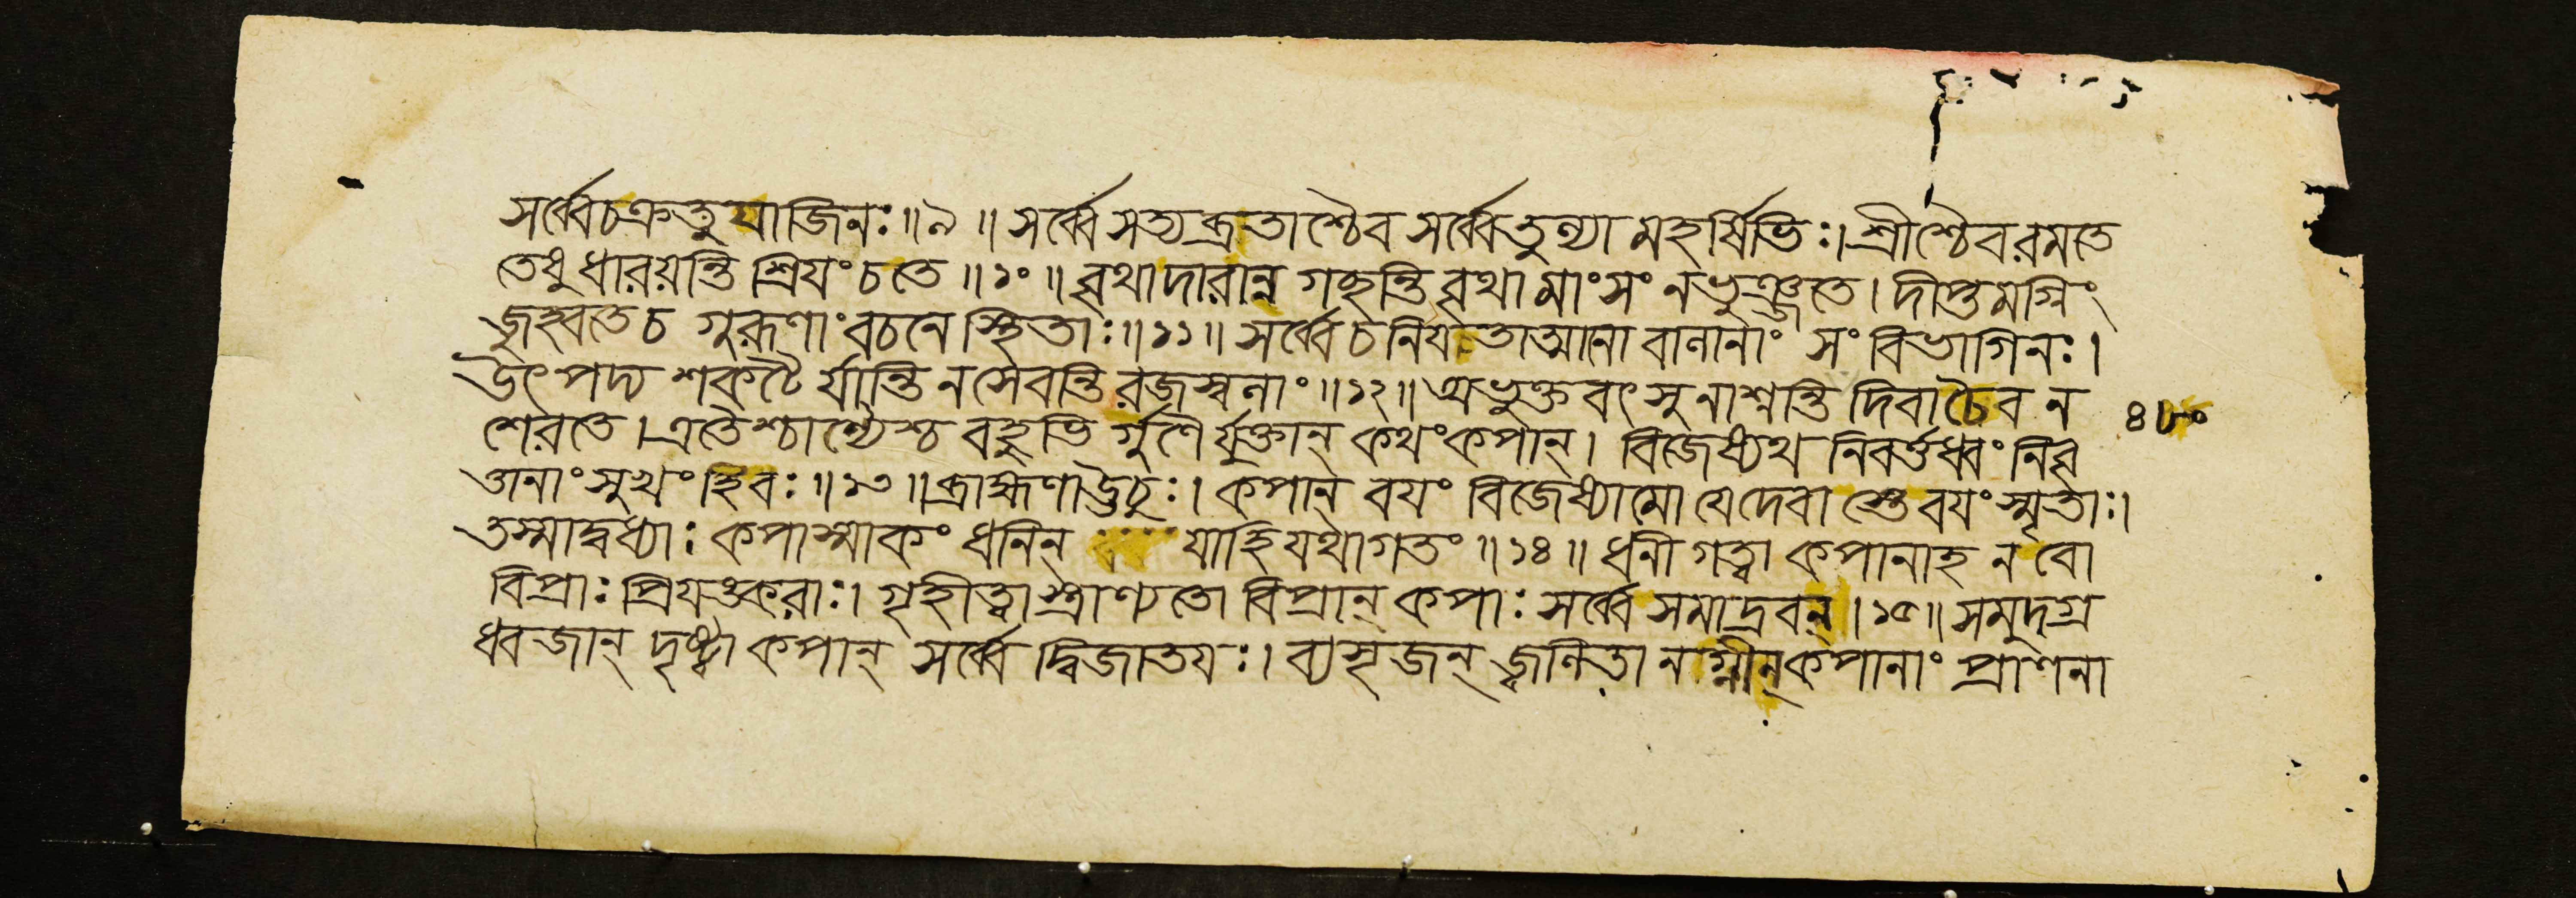 সর্ব্বেচক্রতুযাজিনঃ॥৯॥সর্ব্বেসত্যব্রতাশ্চৈবসর্ব্বেতুল্যামহর্ষিভিঃ।শ্রীশ্চৈবরমতে
তেধুধারয়ন্তিশ্রিযংচতে॥১০॥বৃথাদারান্নগচ্ছন্তিবৃথামাংসংনভুঞ্জতে।দীপ্তমগ্নিং
জুহ্বতেচ গুরূণাংবচনেস্থিতাঃ॥১১॥সর্ব্বেচনিযতাত্মানোবালানাং সংবিভাগিনঃ।
উৎপদ্য শকটৈর্যান্তিনসেবন্তিরজস্বলাং॥১২॥অভুক্তবৎসুনাশ্নন্তিদিবাচৈবন
শেরতে।এতৈশ্চান্যৈশ্চবহুভির্গুণৈর্যুক্তান্ কথংকপান্। বিজেষ্যথ নিবর্ত্তধ্বংনিবৃ ৪৮০
ত্তানাংসুখংহিবঃ॥১৩॥ব্রাহ্মণাঊচুঃ।কপান্ বযংবিজেষ্যামোযেদেবাস্তেবযংস্মৃতাঃ।
তস্মাদ্বধ্যাঃকপাস্মাকংধনিন্ যাহিযথাগতং॥১৪॥ধনীগত্বাকপানাহনবো
বিপ্রাঃপ্রিযঙ্করাঃ।গৃহীত্বাস্ত্রাণ্যতোবিপ্রান্কপাঃসর্ব্বেসমাদ্রবন্।১৫॥সমুদগ্র
ধ্বজান্ দৃষ্ট্বাকপান্ সর্ব্বেদ্বিজাতযঃ।ব্যসৃজন্জ্বলিতানগ্নীন্কপানাংপ্রাণনা